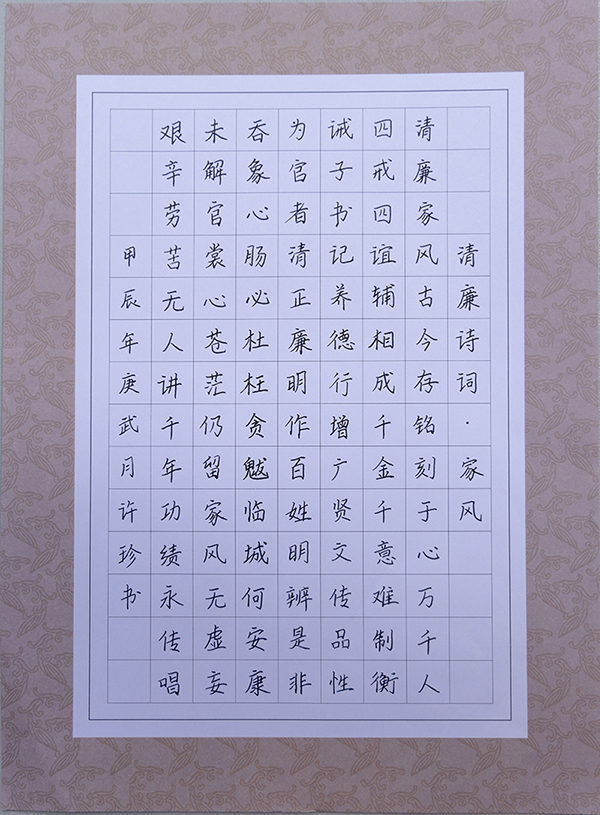 清廉诗词·家风
清廉家风古今存铭刻于心万千人
四戒四谊辅相成千金千意难制衡
诫子书记养德行增广贤文传品性
为官者清正廉明作百姓明辨是非
吞象心肠必杜枉贪魃临城何安康
未解官裳心苍茫仍留家风无虚妄
艰辛劳苦无人讲千年功绩永传唱
甲辰年庚武月许珍书